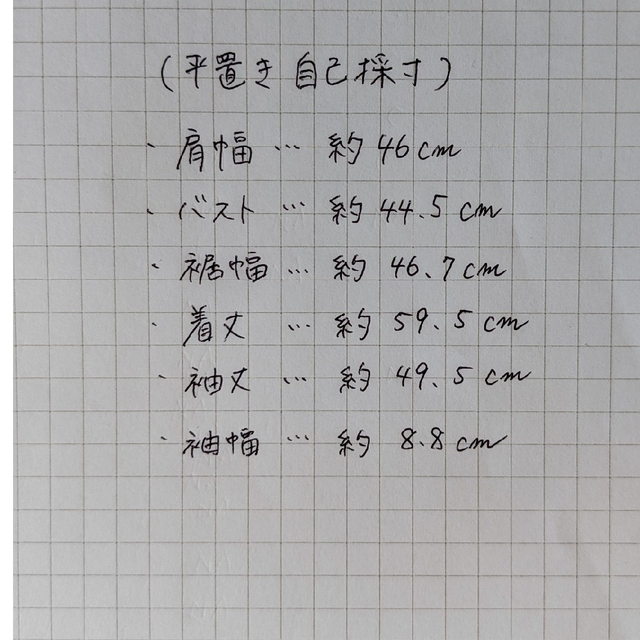 (平置き 自己採寸)
・肩幅 … 約 46cm
・バスト … 約 44.5cm
・裾幅 … 約 46.7cm
・着丈 … 約 59.5cm
・袖丈 … 約 49.5cm
・袖幅 … 約 8.8cm